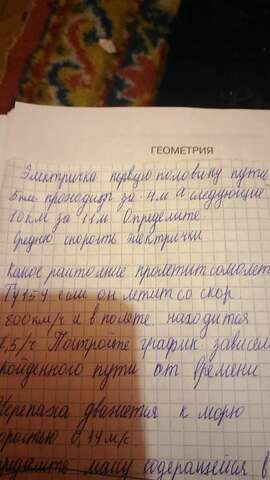 ГЕОМЕТРИЯ
Электричка первую половину пути
5км проходит за 4м а следующие
10км за 11м. Определите
среднюю скорость электрички
Какое растояние пролетит самолет
Ту154 если он летит со скор.
800км/ч и в полете находится
,5/ч Постройте график зависим
ройденного пути от времени
Черепаха двжается к морю
оростью 0,14м/с
массу содержащейся в